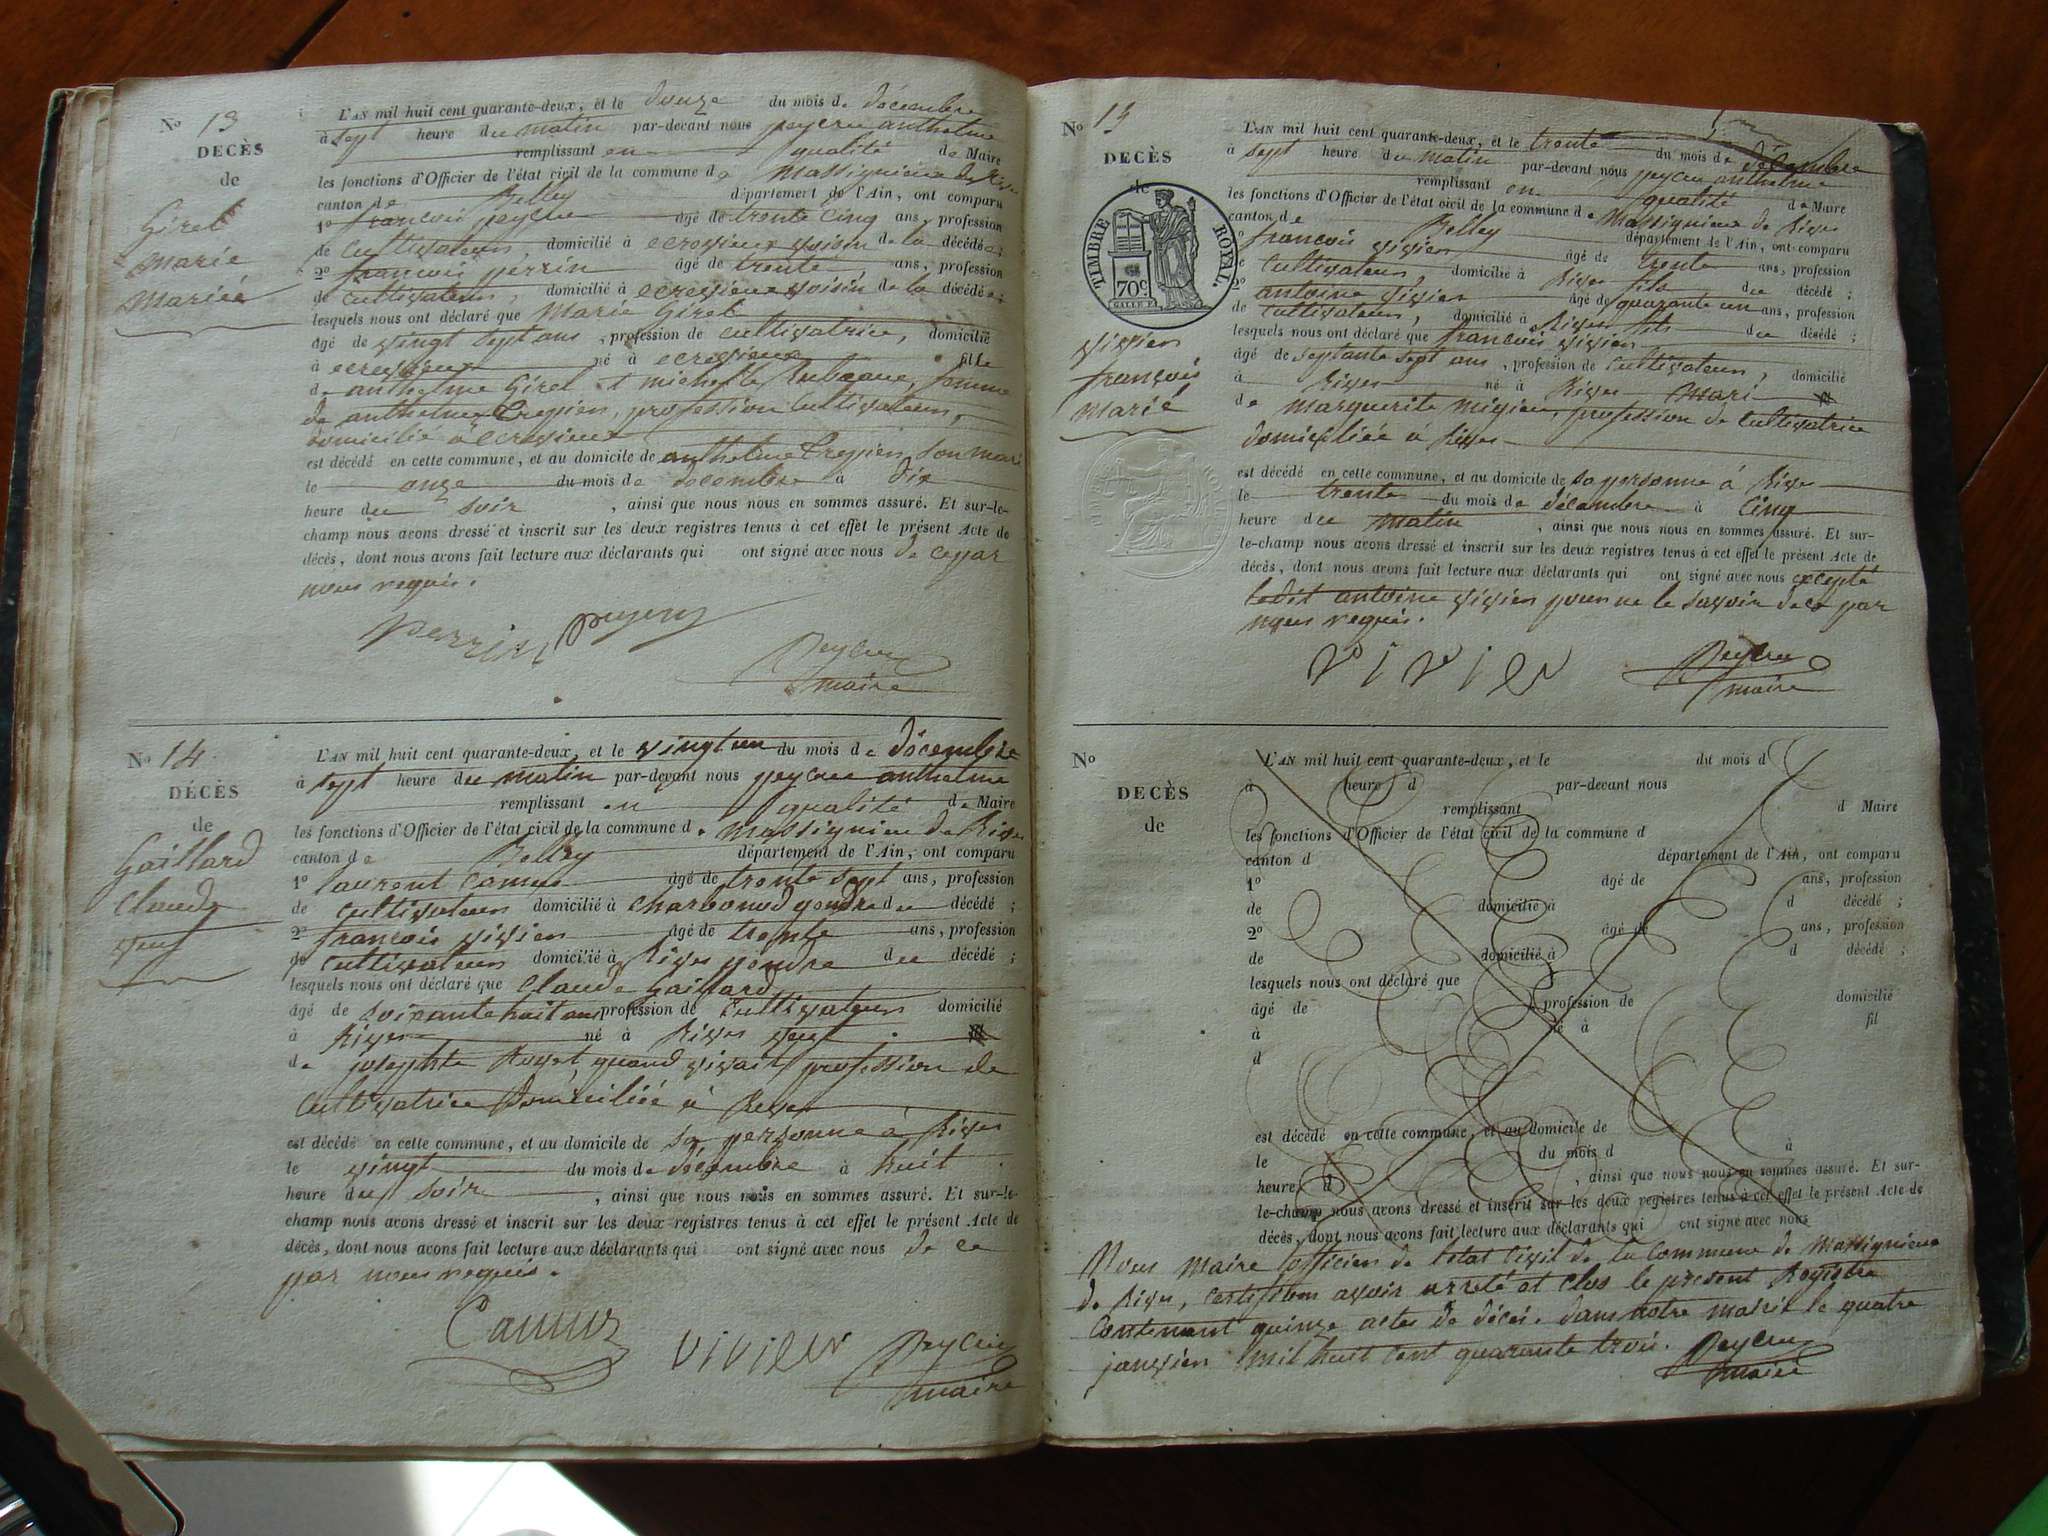 No 13
DECÈS
de
Girel
Marie
Mariée
L'AN mil huit cent quarante-deux, et le douze du mois de décembre
à sept heure du matin par-devant nous peycru anthelme
remplissant en qualité de Maire
les fonctions d'Officier de l'état civil de la commune de Massignieu de Rives
canton de Belley département de l'Ain, ont comparu
1o françois peycru âgé de trente cinq ans, profession
de cultivateur domicilié à ecrevieux voisin de la décédée;
2o françois perrin âgé de trente ans, profession
de cultivateur, domicilié à ecrevieux voisin de la décédée;
lesquels nous ont déclaré que Marie Girel
âgé de vingt sept ans, profession de cultivatrice, domicilié
à ecrevieux né à ecrevieux fille
de anthelme Girel et michelle femme
de anthelme Crepien, profession cultivateur,
domicilié à ecrevieux
est décédé en cette commune, et au domicile de anthelme Crepien, son mari
le onze du mois de décembre à dix
heure du soir, ainsi que nous nous en sommes assuré. Et sur-le-
champ nous avons dressé et inscrit sur les deux registres tenus à cet effet le présent Acte de
décès, dont nous avons fait lecture aux déclarants qui ont signé avec nous de ce par
nous requis.
Perrin
Peycru
maire
No 14
DÉCÈS
de
Gaillard
Claude
veuf
L'AN mil huit cent quarante-deux, et le vingt un du mois de décembre
à sept heure du matin par-devant nous peycru anthelme
remplissant en qualité de Maire
les fonctions d'Officier de l'état civil de la commune de Massignieu de Rives
canton de Belley département de l'Ain, ont comparu
1o laurent Camus âgé de trente sept ans, profession
de cultivateur domicilié à Charbonod gendre du décédé;
2o françois vivien âgé de trente ans, profession
de cultivateur domicilié à Rives gendre du décédé;
lesquels nous ont déclaré que Claude Gaillard
âgé de soixante huit ans profession de Cultivateur domicilié
à Rives né à Rives veuf
de josephte Royet, quand vivait profession de
Cultivatrice Domiciliée à Rives
est décédé en cette commune, et au domicile de sa personne à Rives
le vingt du mois de décembre à huit
heure du soir, ainsi que nous nous en sommes assuré. Et sur-le-
champ nous avons dressé et inscrit sur les deux registres tenus à cet effet le présent Acte de
décès, dont nous avons fait lecture aux déclarants qui ont signé avec nous de ce
par nous requis.
Camus vivien Peycru
maire
No 13
DECÈS
de
TIMBRE ROYAL.
70c
vivien
françois
Marié
L'AN mil huit cent quarante-deux, et le trente du mois de décembre
à sept heure du matin par-devant nous peycru anthelme
remplissant en qualité de Maire
les fonctions d'Officier de l'état civil de la commune de Massignieux de Rives
canton de Belley département de l'Ain, ont comparu
françois vivien âgé de trente ans, profession
cultivateur, domicilié à Rives fils du décédé;
2o antoine vivien âgé de quarante un ans, profession
de cultivateur, domicilié à Rives fils du décédé;
lesquels nous ont déclaré que françois vivien
âgé de septante sept ans, profession de cultivateur, domicilié
à Rives né à Rives mari
de marguerite migieu, profession de Cultivatrice
domiciliée à Rives
est décédé en cette commune, et au domicile de sa personne à Rives
le trente du mois de décembre à Cinq
heure du matin, ainsi que nous nous en sommes assuré. Et sur-
le-champ nous avons dressé et inscrit sur les deux registres tenus à cet effet le présent Acte de
décès, dont nous avons fait lecture aux déclarants qui ont signé avec nous excepté
ledit antoine vivien pour ne le savoir de ce par
nous requis.
vivien Peycru
maire
No
DECÈS
de
L'AN mil huit cent quarante-deux, et le du mois d
à heure d par-devant nous
remplissant d Maire
les fonctions d'Officier de l'état civil de la commune d
canton d département de l'Ain, ont comparu
1o âgé de ans, profession
de domicilié à d décédé;
2o âgé de ans, profession
de domicilié à d décédé;
lesquels nous ont déclaré que
âgé de profession de domicilié
à né à fil
d
est décédé en cette commune, et au domicile de
le du mois d à
heure d, ainsi que nous nous en sommes assuré. Et sur-
le-champ nous avons dressé et inscrit sur les deux registres tenus à cet effet le présent Acte de
décès, dont nous avons fait lecture aux déclarants qui ont signé avec nous
Nous Maire officier de l'état civil de la Commune de Massignieux
de Rives, certifions avoir arreté et clos le présent Registre
Contenant quinze actes de décès. dans notre mairie le quatre
janvier mil huit cent quarante trois. Peycru
maire